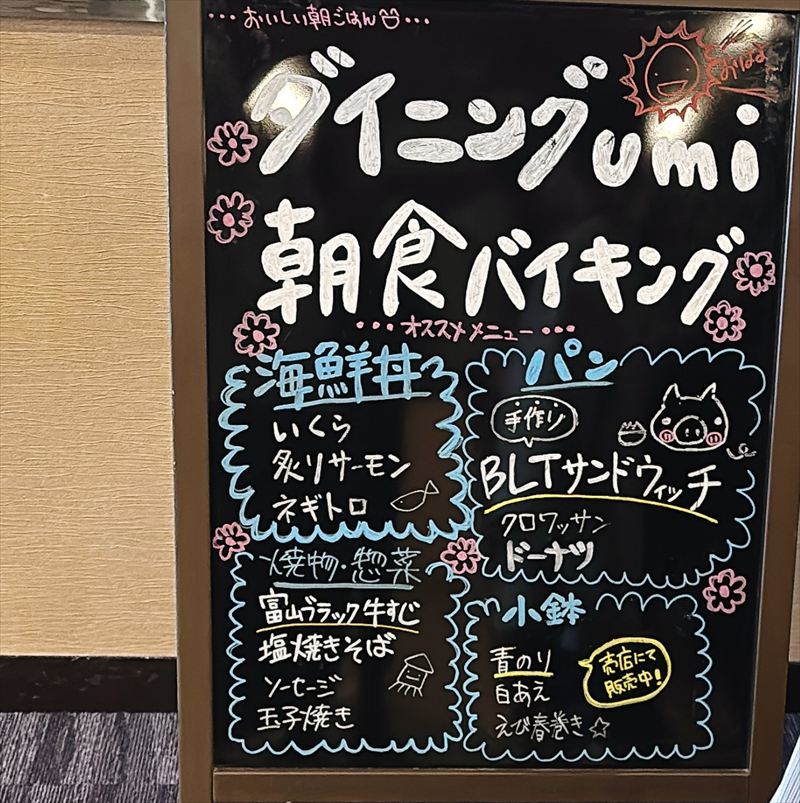 ・・・おいしい朝ごはん・・・
おはよ
ダイニングumi
朝食バイキング
・・・オススメメニュー・・・
海鮮丼
いくら
炙りサーモン
ネギトロ
パン
手作り
BLTサンドウィッチ
クロワッサン
ドーナツ
焼物・惣菜
富山ブラック牛すじ
塩焼きそば
ソーセージ
玉子焼き
小鉢
青のり
白あえ
えび春巻き☆
売店にて
販売中!